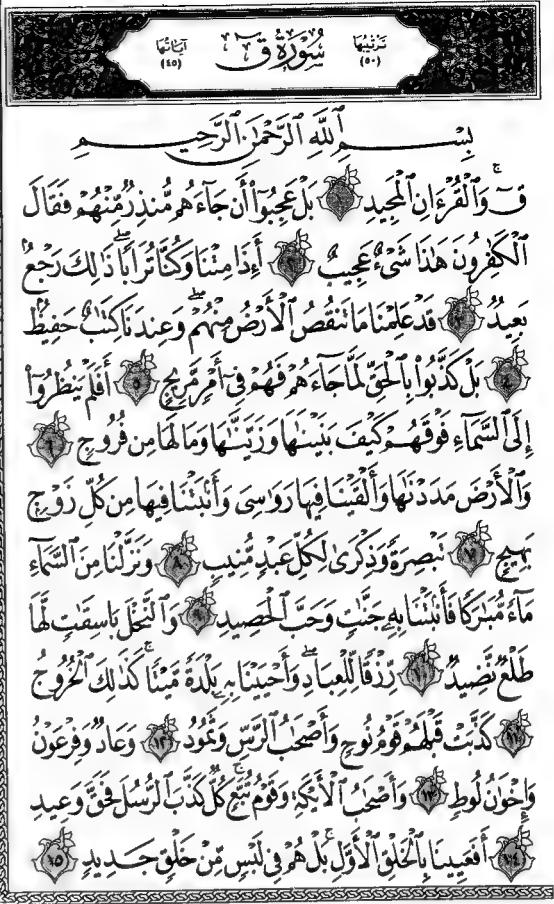 تَرْتِيبُهَا (٥٠) سُورَةُ قٓ آيَاتُهَا (٤٥)
بِسْمِ ٱللَّهِ ٱلرَّحْمَٰنِ ٱلرَّحِيمِ
قٓ ۚ وَٱلْقُرْءَانِ ٱلْمَجِيدِ ١ بَلْ عَجِبُوٓا۟ أَن جَآءَهُم مُّنذِرٌ مِّنْهُمْ فَقَالَ
ٱلْكَٰفِرُونَ هَٰذَا شَىْءٌ عَجِيبٌ ٢ أَءِذَا مِتْنَا وَكُنَّا تُرَابًا ۖ ذَٰلِكَ رَجْعٌۢ
بَعِيدٌ ٣ قَدْ عَلِمْنَا مَا تَنقُصُ ٱلْأَرْضُ مِنْهُمْ ۖ وَعِندَنَا كِتَٰبٌ حَفِيظٌۢ
٤ بَلْ كَذَّبُوا۟ بِٱلْحَقِّ لَمَّا جَآءَهُمْ فَهُمْ فِىٓ أَمْرٍ مَّرِيجٍ ٥ أَفَلَمْ يَنظُرُوٓا۟
إِلَى ٱلسَّمَآءِ فَوْقَهُمْ كَيْفَ بَنَيْنَٰهَا وَزَيَّنَّٰهَا وَمَا لَهَا مِن فُرُوجٍ ٦
وَٱلْأَرْضَ مَدَدْنَٰهَا وَأَلْقَيْنَا فِيهَا رَوَٰسِىَ وَأَنۢبَتْنَا فِيهَا مِن كُلِّ زَوْجٍۭ
بَهِيجٍ ٧ تَبْصِرَةً وَذِكْرَىٰ لِكُلِّ عَبْدٍ مُّنِيبٍ ٨ وَنَزَّلْنَا مِنَ ٱلسَّمَآءِ
مَآءً مُّبَٰرَكًا فَأَنۢبَتْنَا بِهِۦ جَنَّٰتٍ وَحَبَّ ٱلْحَصِيدِ ٩ وَٱلنَّخْلَ بَاسِقَٰتٍ لَّهَا
طَلْعٌ نَّضِيدٌ ١٠ رِّزْقًا لِّلْعِبَادِ ۖ وَأَحْيَيْنَا بِهِۦ بَلْدَةً مَّيْتًا ۚ كَذَٰلِكَ ٱلْخُرُوجُ
١١ كَذَّبَتْ قَبْلَهُمْ قَوْمُ نُوحٍ وَأَصْحَٰبُ ٱلرَّسِّ وَثَمُودُ ١٢ وَعَادٌ وَفِرْعَوْنُ
وَإِخْوَٰنُ لُوطٍ ١٣ وَأَصْحَٰبُ ٱلْأَيْكَةِ وَقَوْمُ تُبَّعٍ ۚ كُلٌّ كَذَّبَ ٱلرُّسُلَ فَحَقَّ وَعِيدِ
١٤ أَفَعَيِينَا بِٱلْخَلْقِ ٱلْأَوَّلِ ۚ بَلْ هُمْ فِى لَبْسٍ مِّنْ خَلْقٍ جَدِيدٍ ١٥